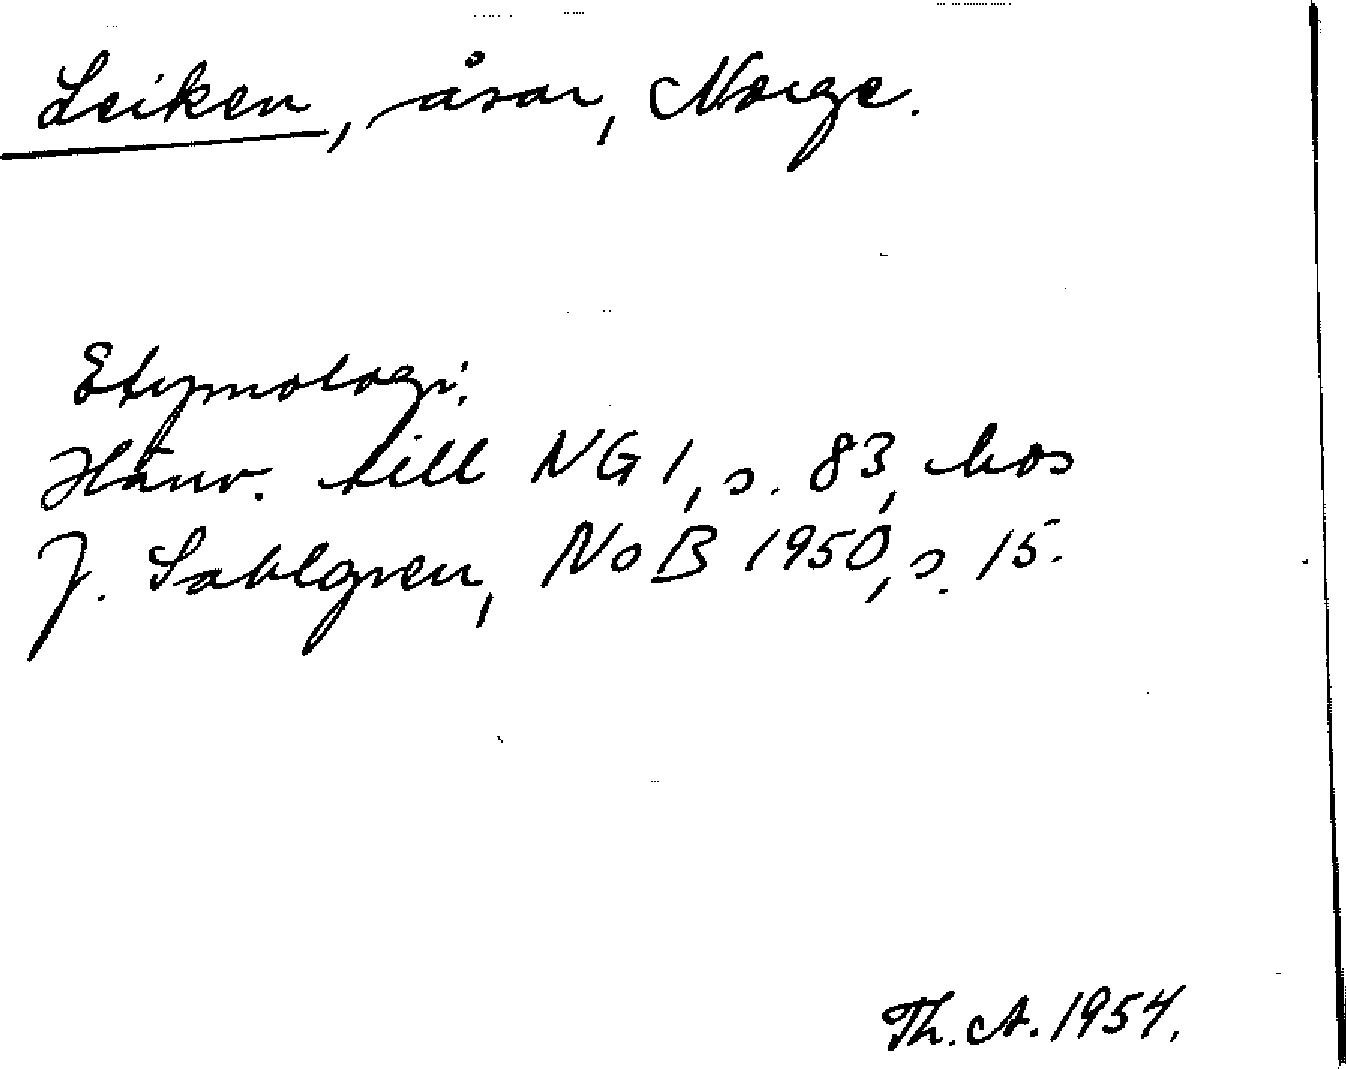 Leiken, åsar, Norge.
Etymologi:
Hänv. till NG 1, s. 83, hos
J. Sahlgren, NoB 1950, s. 15.
Th. A. 1954.